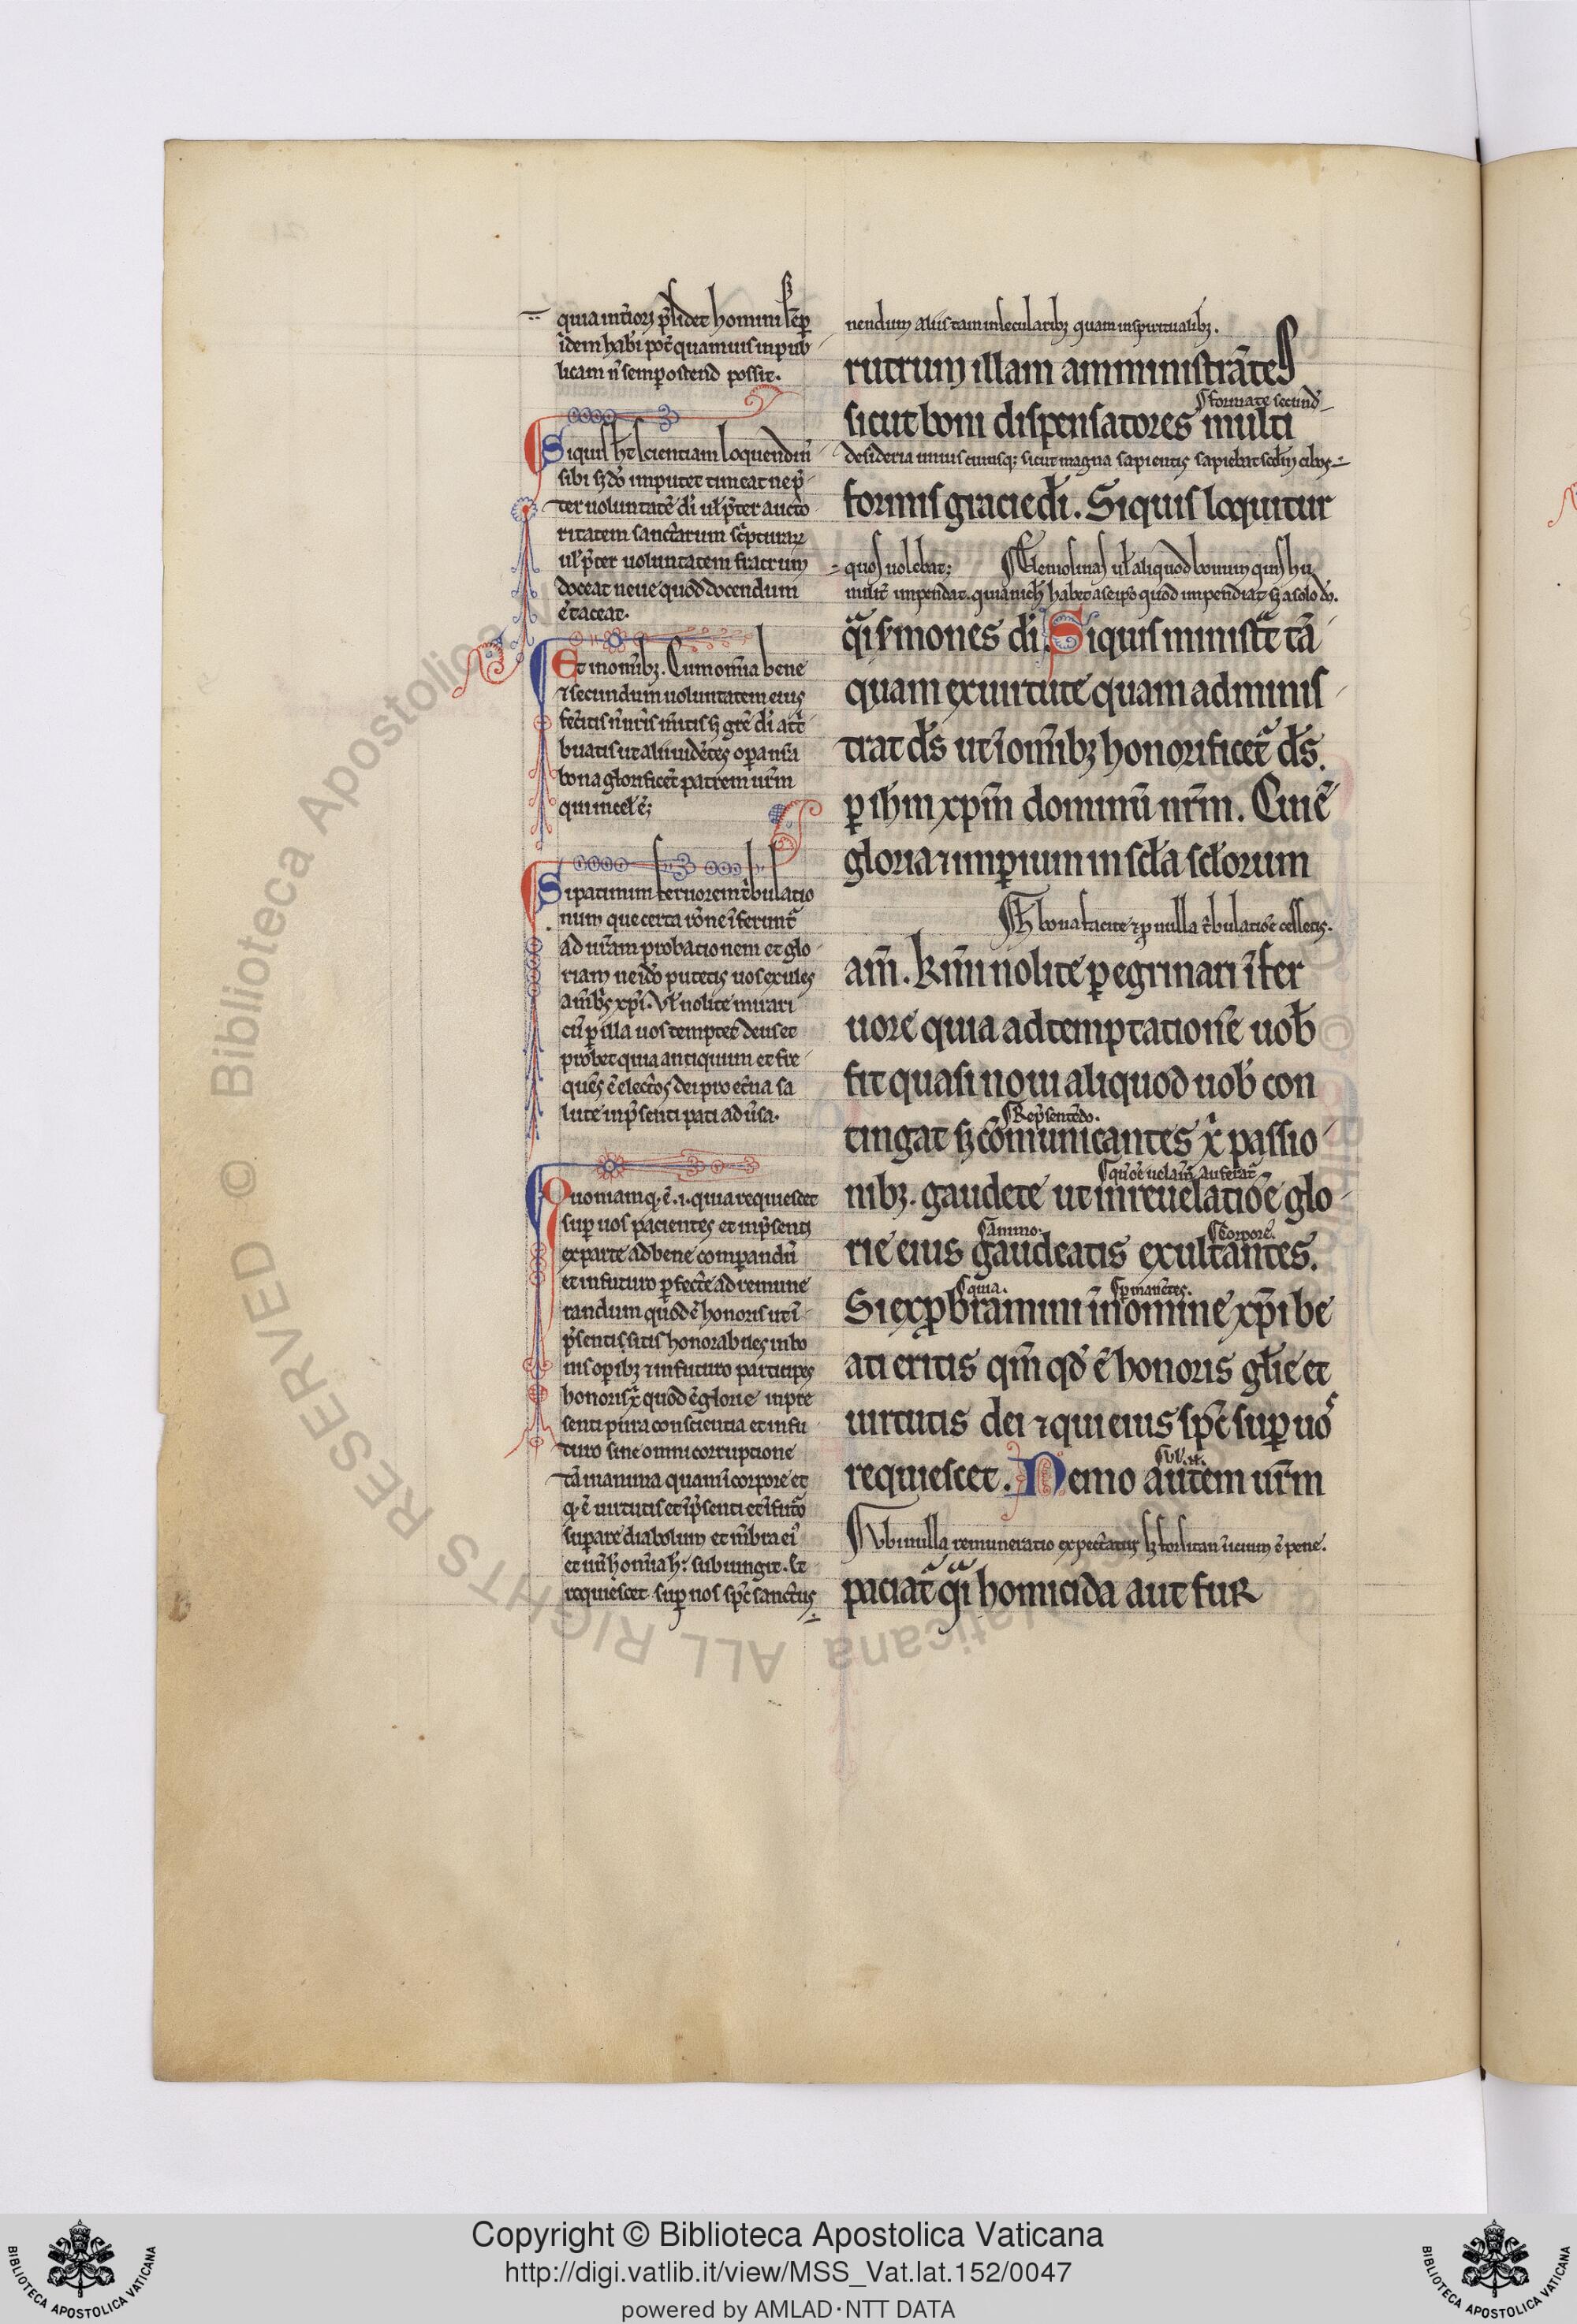 quia intiorꝫ p̄sidet homini sēꝑ
idem hr̄i pōt quamuis in pub
licam n̄ semꝑ ostend possit.
Siquis ht̄ scientiam loquendi n̄
sibi sꝫ dō imputet timeat ne p̄
ter uoluntatē dī ul̄ p̄ter aucto
ritatem sanctarum scͥpturarꝫ
ul̄ p̄ter uoluntatem fratrum
doceat neue quod docendum
ē taceat.
Et in om̄ibꝫ. Cum om̄ia bene
⁊ secundum uoluntatem eius
fec̄itis n̄ ur̄is m̄itis sꝫ gr̄e dī att̄
buatis ut alii uidētes oꝑa ur̄a
bona glorificēt patrem ur̄m
qui in cel̄ ē;
Si patimini feruorem tͥbulatio
num que certa rōne īferuntᷣ
ad ur̄am probationem et glo
riam ne iō putetis uos exules
ab amb̄s xp̄i. Ul̄ nolite mirari
cū ꝑ illa uos temptet deus et
probet quia antiquum et fre
quēs ē electos dei pro et̄na sa
lute in p̄senti pati adūsa.
Quoniam q. ē. .i. quia requiescet
suꝑ uos pacientes et in p̄senti
ex parte ad bene comꝑandū
et in futuro ꝑfecte ad remune
randum quod ē honoris ut ī
p̄sentis sitis honorabiles in bo
nis oꝑibꝫ ⁊ in futuro participes
honoris xͥ quod ē glorie in pre
senti pura conscientia et in fu
turo sine omni corruptione
tā in anima quam ī corpore et
q. ē uirtutis et ī p̄senti et ī futͦo
suꝑare diabolum et m̄bra eiꝰ
et un̄ hom̄ia h: subiungit. Et
requiescet suꝑ uos sp̄c sanctus
nendum aliis tam in secularibꝫ quam in spiritualibꝫ.
rutrum illam amministrātes
formate secund̄
sicut boni dispensatores multi
desideria unius cuiusqꝫ sicut magna sapientis sapiebat scd̄m cibos
formis gracie dī. Siquis loquitur
quos uolebat; Elemosinas ul̄ aliquod bonum quis hu
milit̄ impendat. quia nich̄ habet a seipso quod impendiat sꝫ a solo dō.
qͣi sͬmones dī. Siquis ministͣt tā
quam ex uirtute quam adminis
trat ds̄ ut ī om̄ibꝫ honorificetᷣ ds̄.
ꝑ ih̄m xp̄m dominū nr̄m. Cui ē
gloria ⁊ imꝑium in scl̄a scl̄orum
H̄ bona facite ⁊ ꝓ nulla tͥbulatiōe cessetis.
am̄. Km̄i nolite ꝑegrinari ī fer
uore quia ad temptationē uob̄
fit quasi noui aliquod uob̄ con
Rep̄sentēdo.
tingat sꝫ cōmunicantes xͥ passio
nibꝫ. gaudete ut in reuelatiōe glo
animo. Corpore.
rie eius gaudeatis exultantes.
quia. ꝑmanētes.
Si exꝓbramini ī nomine xp̄i be
ati eritis qm̄ qd̄ ē honoris gl̄ie et
uirtutis dei ⁊ qui eius sp̄c suꝑ uos
requiescet. Nemo autem ur̄m
Ubi nulla remuneratio expectatur sꝫ forsitan uicium ē pene.
paciatᷣ qͣi homicida aut fur
Copyright © Biblioteca Apostolica Vaticana
http://digi.vatlib.it/view/MSS_Vat.lat.152/0047
powered by AMLAD·NTT DATA
BIBLIOTECA APOSTOLICA VATICANA
BIBLIOTECA APOSTOLICA VATICANA